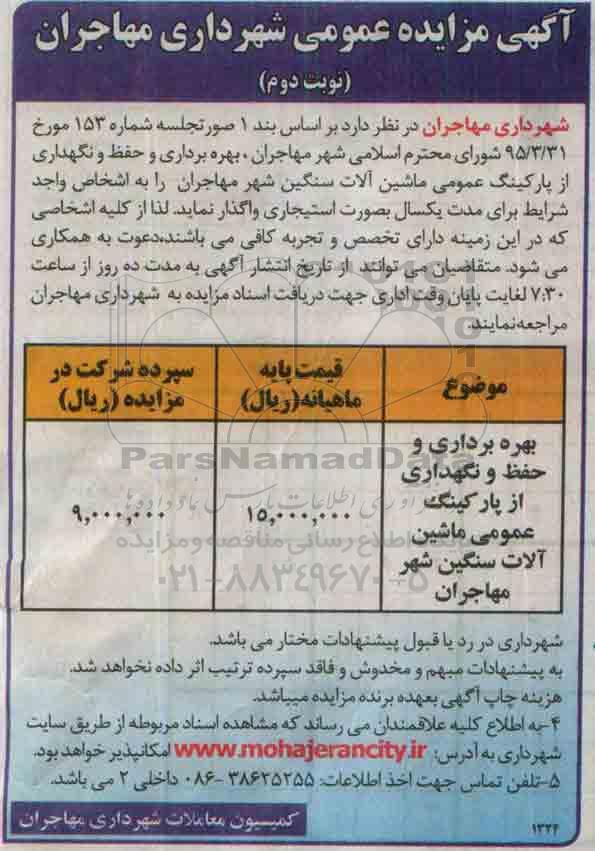 آگهی مزایده عمومی شهرداری مهاجران
(نوبت دوم)
شهرداری مهاجران در نظر دارد بر اساس بند ۱ صورتجلسه شماره ۱۵۳ مورخ
۹۵/۳/۳۱ شورای محترم اسلامی شهر مهاجران ، بهره برداری و حفظ و نگهداری
از پارکینگ عمومی ماشین آلات سنگین شهر مهاجران را به اشخاص واجد
شرایط برای مدت یکسال بصورت استیجاری واگذار نماید. لذا از کلیه اشخاصی
که در این زمینه دارای تخصص و تجربه کافی می باشند،دعوت به همکاری
می شود. متقاضیان می توانند از تاریخ انتشار آگهی به مدت ده روز از ساعت
۷:۳۰ لغایت پایان وقت اداری جهت دریافت اسناد مزایده به شهرداری مهاجران
مراجعه‌نمایند.
موضوع
قیمت پایه
ماهیانه(ریال)
سپرده شرکت در
مزایده (ریال)
بهره برداری و
حفظ و نگهداری
از پارکینگ
عمومی ماشین
آلات سنگین شهر
مهاجران
۱۵,۰۰۰,۰۰۰
۹,۰۰۰,۰۰۰
ParsNamadData
فرآوری اطلاعات پارس نماد داده‌ها
اطلاع رسانی مناقصه و مزایده
۰۲۱-۸۸۳۴۹۶۷۰-۵
شهرداری در رد یا قبول پیشنهادات مختار می باشد.
به پیشنهادات مبهم و مخدوش و فاقد سپرده ترتیب اثر داده نخواهد شد.
هزینه چاپ آگهی بعهده برنده مزایده میباشد.
۴-به اطلاع کلیه علاقمندان می رساند که مشاهده اسناد مربوطه از طریق سایت
شهرداری به آدرس: www.mohajerancity.ir امکانپذیر خواهد بود.
۵-تلفن تماس جهت اخذ اطلاعات: ۳۸۶۲۵۲۵۵ -۰۸۶ داخلی ۲ می باشد.
کمیسیون معاملات شهرداری مهاجران
۱۳۲۴